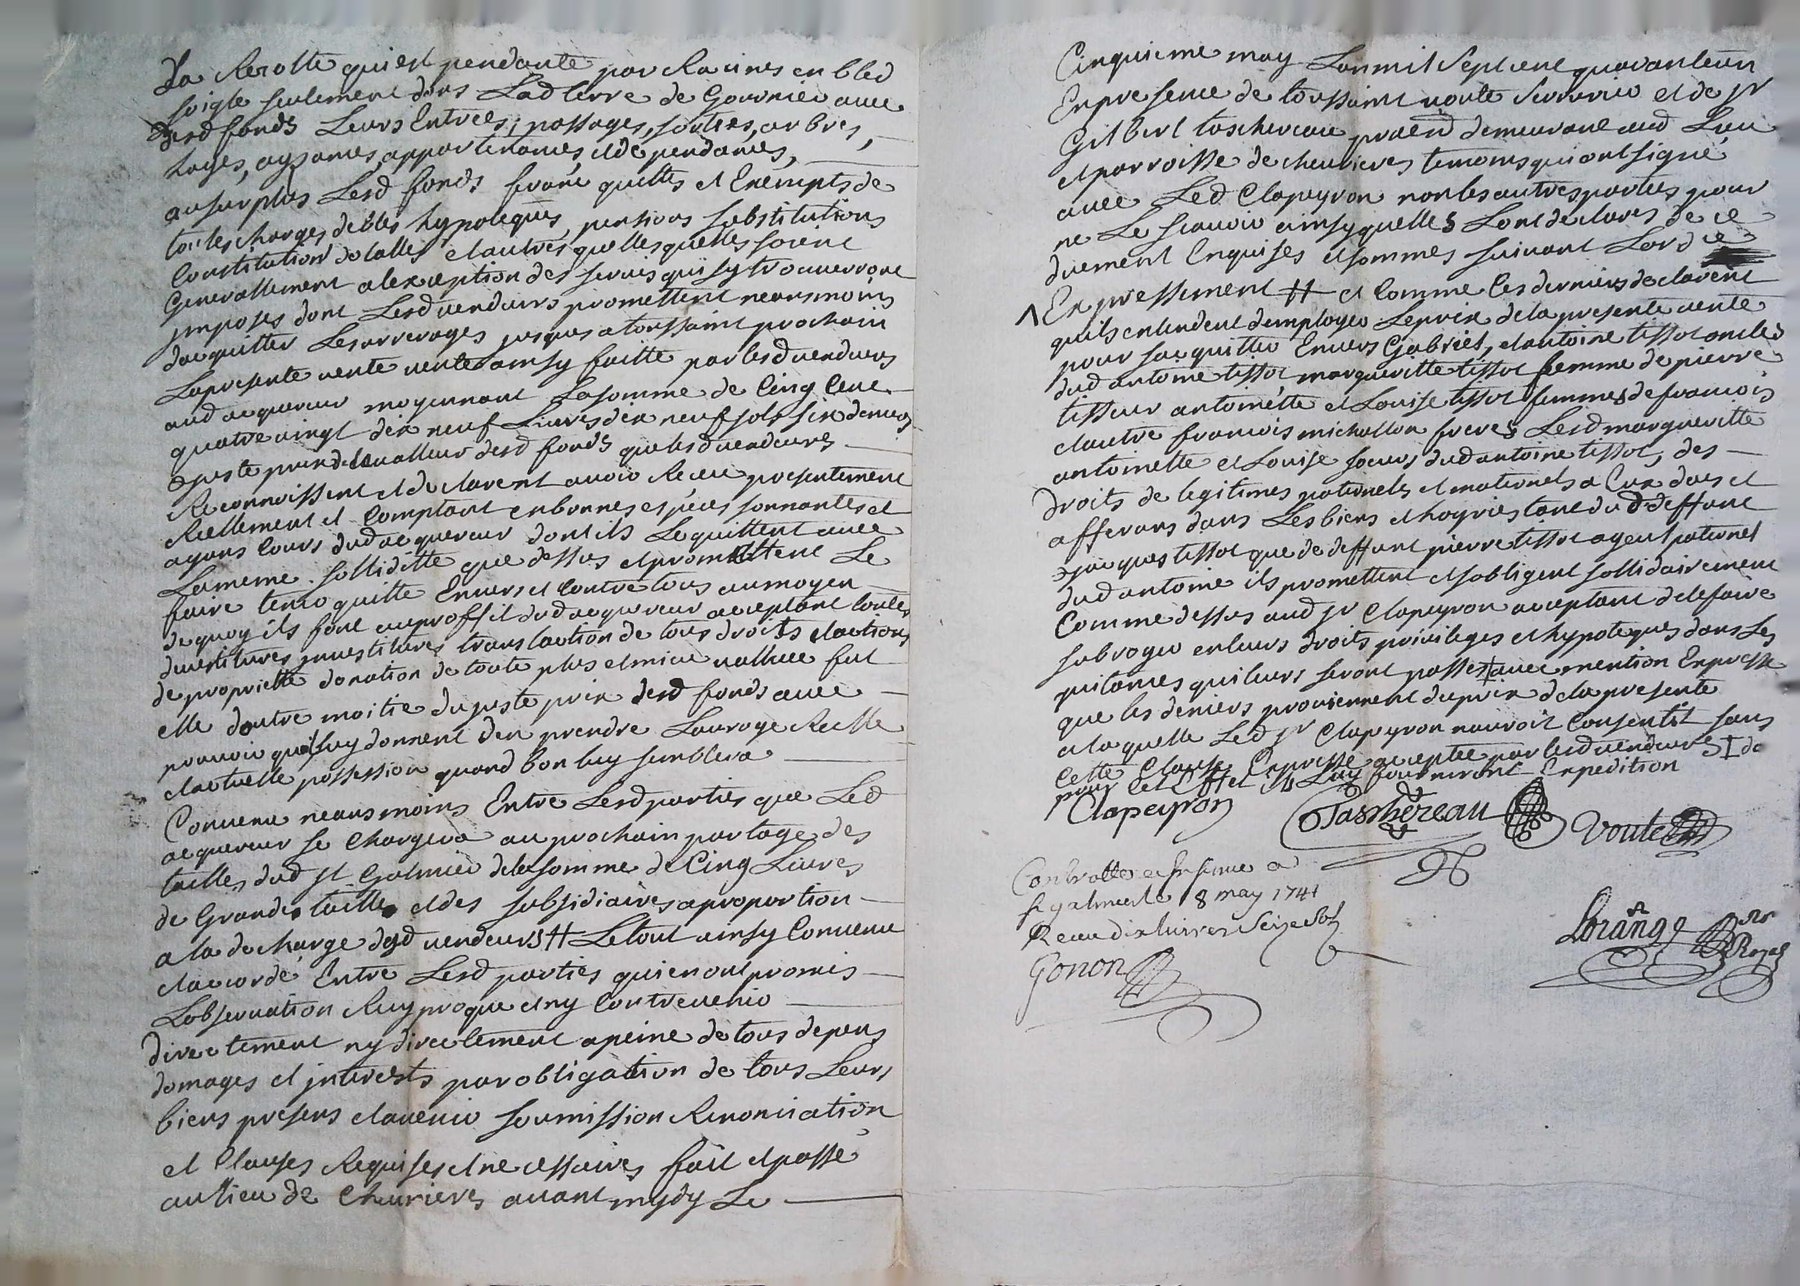 La Recolte qui est pendante par Racines en bled
soigle seulement dans Lad terre de Gournier avec
Lesd fonds Leurs Entrées, passages, sorties, arbres,
hayes, aysances, appartenances et dependances,
au surplus Lesd fonds francs quittes et Exempts de
toutes charges debtes hypoteques, pentions substitutions
Constitution de tailles et autres quelles quelles soient
Generallement a lexception des servis qui sy trouveront
jmposes dont Lesd vendeurs promettent neansmoins
dacquitter Les arrerages jusques a toussaint prochain
La presente vente vente ainsy faitte par lesd vendeurs
aud acquereur moyennant La somme de Cinq Cent
quatre vingt dix neuf Livres dix neuf sols six deniers
juste prix et valleur desd fonds que lesd vendeurs
Reconnoissent et declarent avoir Receu presentement
Reellement et Comptant en bonnes espèces sonnantes et
ayans Cours dud acquereur dont ils Le quittent avec
La meme solliditte que dessus et promettent Le
faire tenir quitte Envers et Contre tous au moyen
de quoy ils font au proffit dud acquereur acceptant toutes
devestitures jnvestitures translaction de tous droits et actions
de proprietté donation de toute plus et mieux vallue fut
elle doutre moitie du juste prix desd fonds avec
pouvoir quils luy donnent den prendre Lavraye Reelle
et actuelle possession quand bon luy semblera
Convenu neansmoins Entre Lesd parties que Led
acquereur se Chargera au prochain partage des
tailles dud St Galmier de la somme de Cinq Livres
de Grandes tailles et des subsidiaires a proportion
a la decharge desd vendeurs # Le tout ainsy Convenu
et accordé Entre Lesd parties qui en ont promis
Lobservation Reciproque et ny Contrevenir
directement ny directement a peine de tous depens
domages et jnterests par obligation de tous Leurs
biens presens et avenir soumission Renonciation
et Clauses Requises et necessaires fait et passé
au lieu de Chevrieres avant mydy Le
Cinquieme may Lan mil Sept cent quarante un
En presence de toussaint voute Serrurier et de sr
Gilbert taschereau praticien demeurant aud Lieu
et parroisse de chevrieres temoins qui ont signé
avec Led Clapeyron non les autres parties pour
ne Le scavoir ainsy quelles Lont declares de ce
duement Enquises et sommes suivant Lord ce
Expressement # et Comme Les derniers declarent
quils entendent demployer Le prix de la presente vente
pour sacquitter Envers Gabriel, et antoine tissot oncles
dud antoine tissot margueritte tissot femme de pierre
tisseur antoinette et Louise tissot femmes de francois
et autre francois michallon freres Lesd margueritte
antoinette et Louise soeurs dud antoine tissot, des
droits de legitimes paternels et maternels a Eux dues et
afferans dans Les biens et hoyries tant dud deffunt
jacques tissot que de deffunt pierre tissot ayeul paternel
dud antoine ils promettent et sobligent sollidairement
Comme dessus aud sr Clapeyron acceptant de le faire
subroger en leurs droits privileges et hypoteques dans Les
quitances qui leurs seront passes avec mention Expresse
que les deniers proviennent du prix de la presente
a laquelle Led sr Clapeyron nauroit Consentit sans
Cette Clause Expresse acceptee par lesd vendeurs
pour Cet Effet ils Luy fourniront Expedition
Clapeyron
Taschereau
Voute
Controllé et Insinué a
St galmier le 8 may 1741
Receu dix livres Seize sols
Gonon
Lorange
Nre
Royal